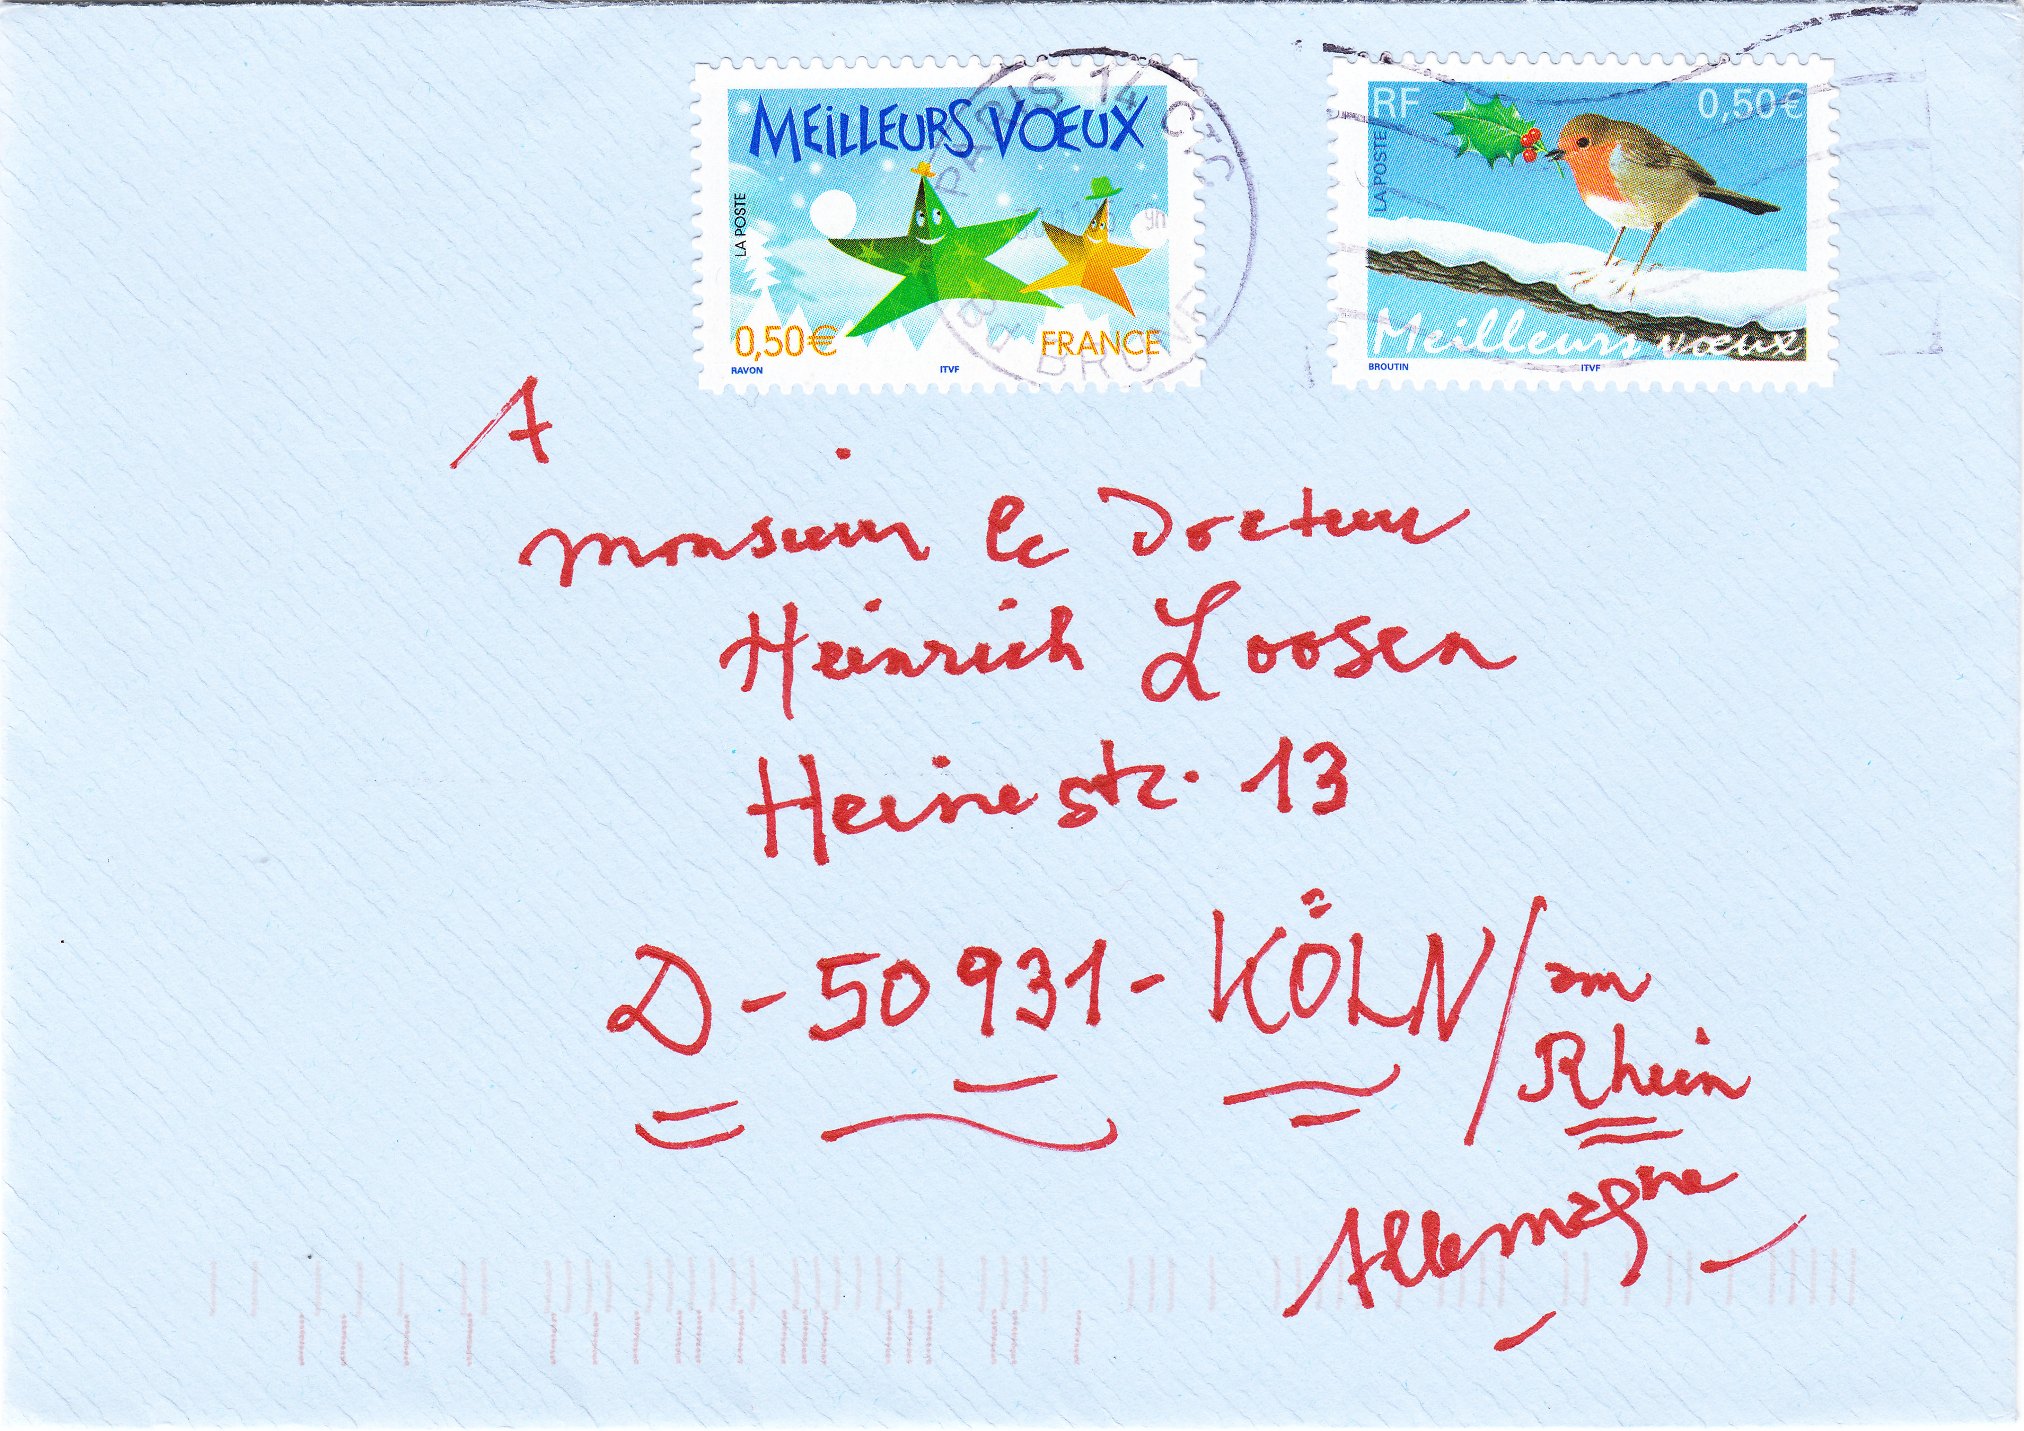 MEILLEURS VŒUX
LA POSTE
0,50€ FRANCE
RAVON ITVF
PARIS 14 CTC
BRUNE
RF 0,50€
LA POSTE
Meilleurs vœux
BROUTIN ITVF
A
Monsieur le Docteur
Heinrich Loosen
Heinestr. 13
D-50931-KÖLN/am
Rhein
Allemagne